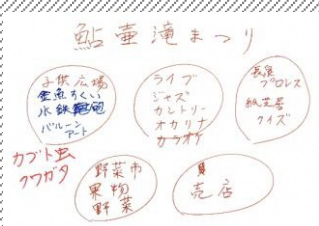 鮎壺滝まつり
子供広場
金魚すくい
水鉄砲
バルーン
アート
ライブ
ジャズ
カントリー
オカリナ
カラオケ
長泉
プロレス
紙芝居
クイズ
カブト虫
クワガタ
野菜市
果物
野菜
売店